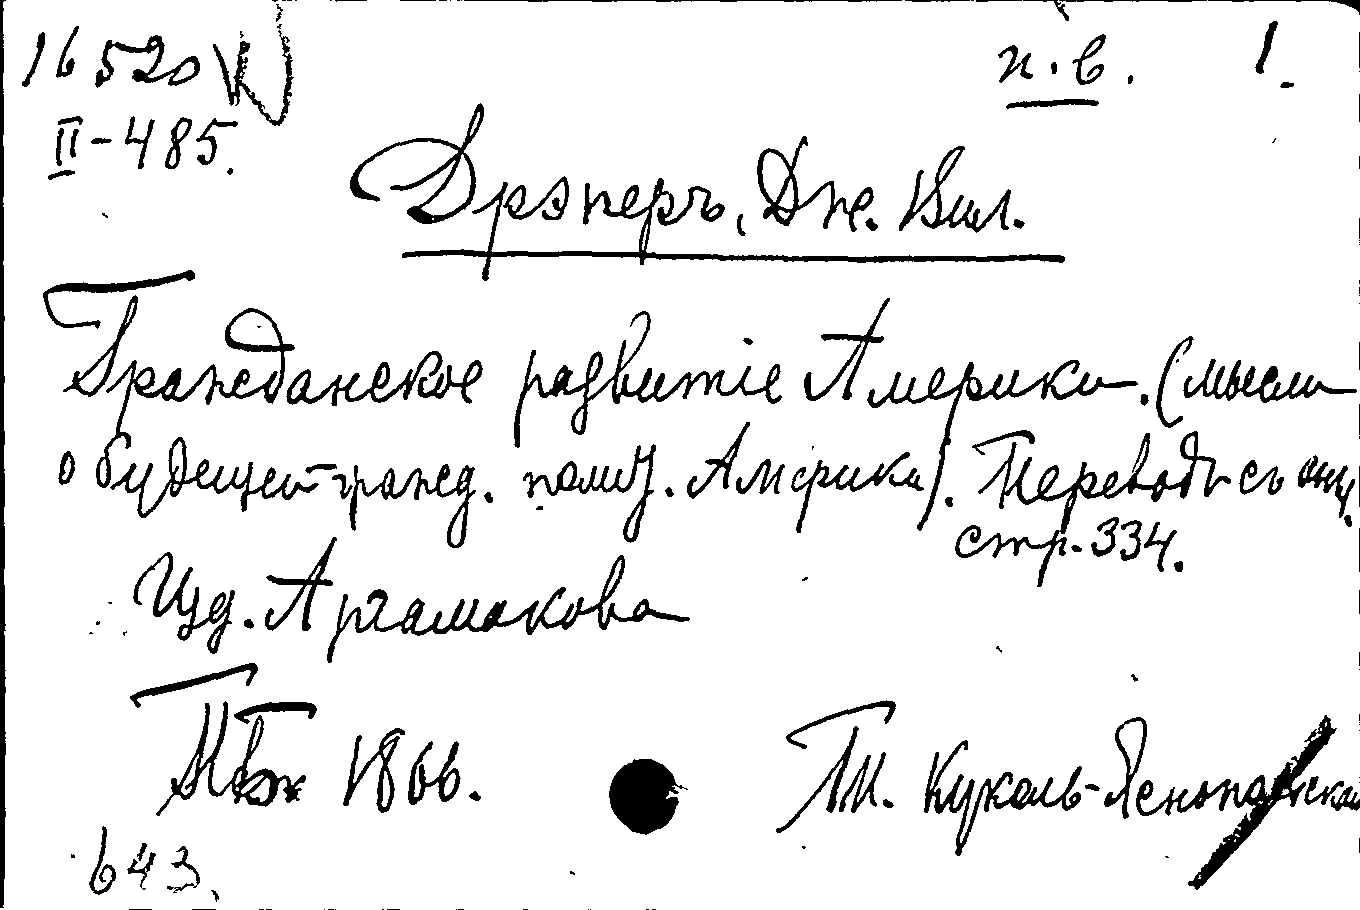 16520
п.в. 1.
II-485.
Дрэперъ, Дж. Вил.
Гражданское развитіе Америки. (мысли
о будущей гражд. полит. Америки). Переводъ съ анг.
стр. 334.
Изд. Артамакова
1866.
Тип. Куколь-Яснопольскаго
643.